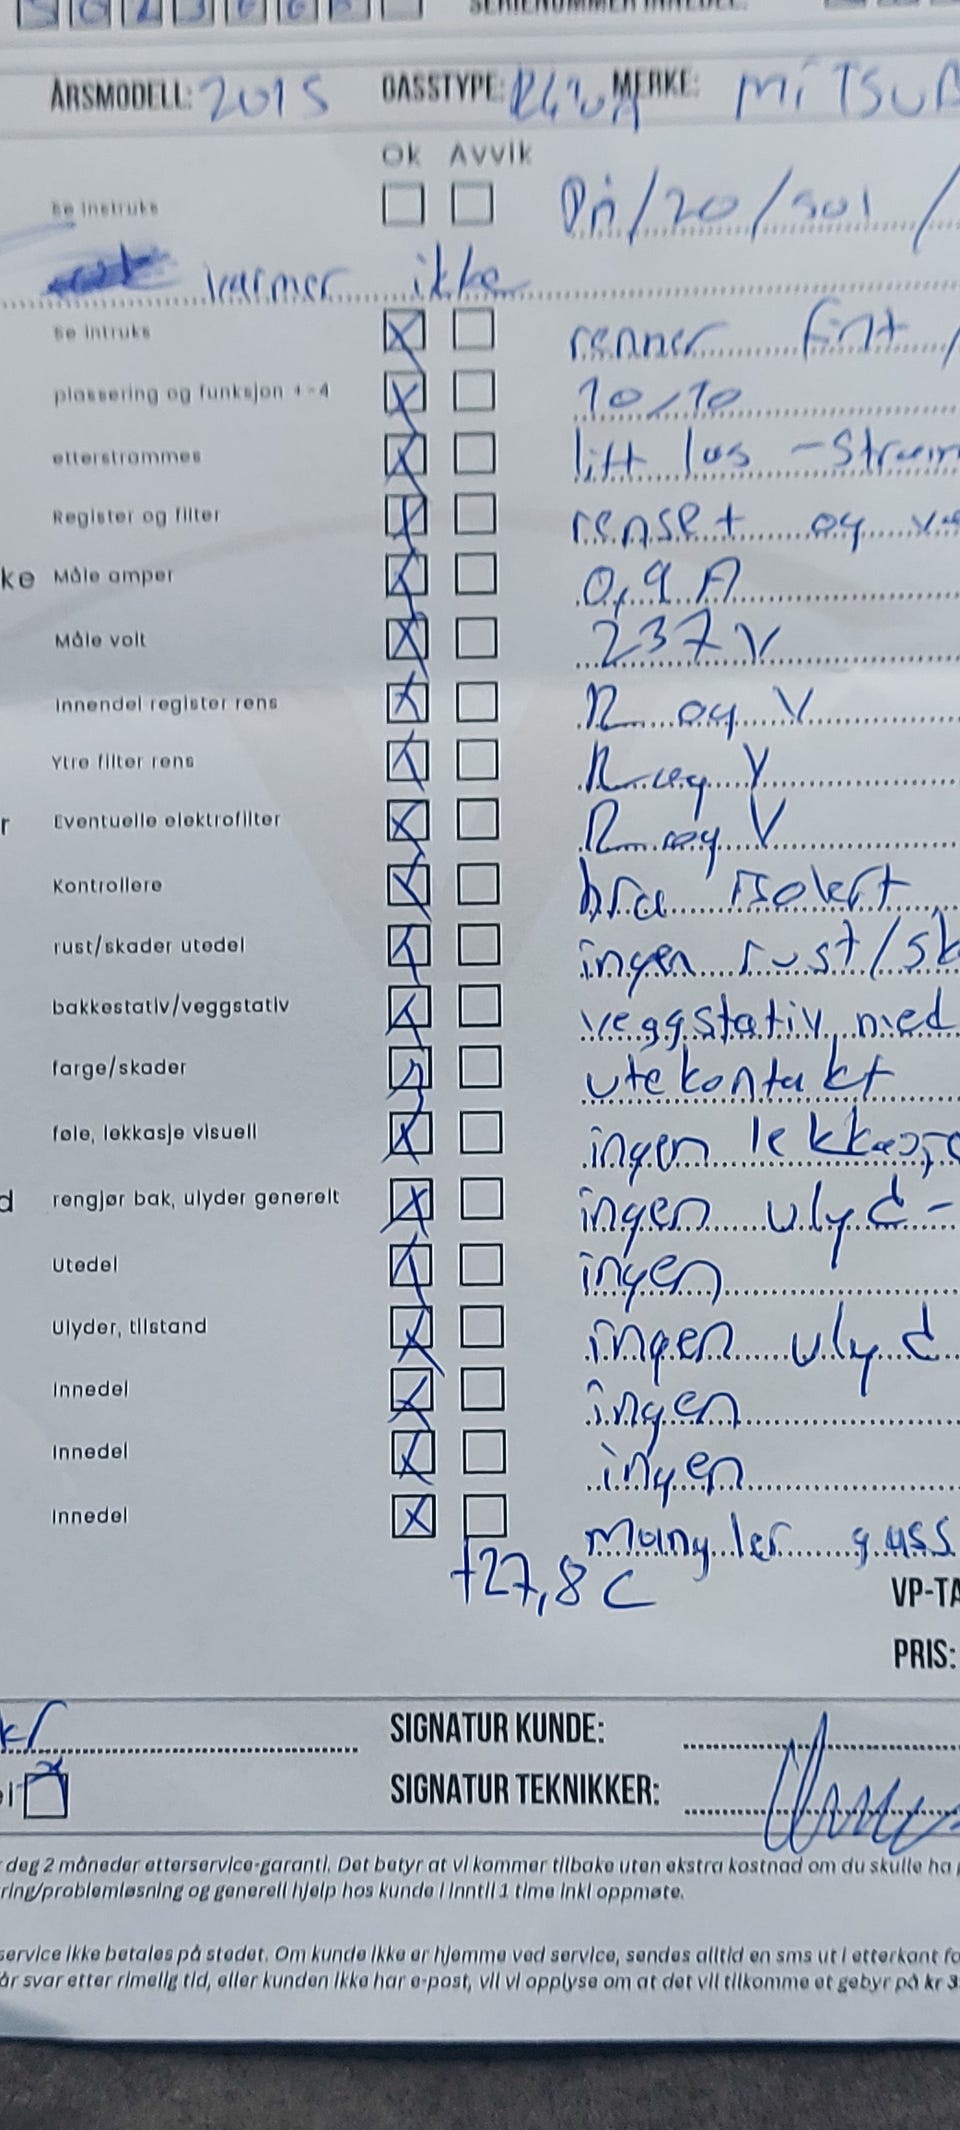 ÅRSMODELL: 2015 GASSTYPE: R410A MERKE: MITSUB
Ok Avvik
Se instruks På/20/501/
varmer ikke
Se intruks renner fint
plassering og funksjon +-4 10/10
etterstrammes litt løs -Stram
Register og filter renset og
ke Måle amper 0,9 A
Måle volt 237 V
Innendel register rens R og V
Ytre filter rens R og V
r Eventuelle elektrofilter R og V
Kontrollere bra isolert
rust/skader utedel ingen rust/sk
bakkestativ/veggstativ veggstativ med
farge/skader utekontakt
føle, lekkasje visuell ingen lekkasje
d rengjør bak, ulyder generelt ingen ulyd -
Utedel ingen
Ulyder, tilstand ingen ulyd
Innedel ingen
Innedel ingen
Innedel Mangler gass
+27,8 C
VP-TA
PRIS:
SIGNATUR KUNDE:
SIGNATUR TEKNIKKER:
deg 2 måneder etterservice-garanti. Det betyr at vi kommer tilbake uten ekstra kostnad om du skulle ha
ring/problemløsning og generell hjelp hos kunde i inntil 1 time inkl oppmøte.
service ikke betales på stedet. Om kunde ikke er hjemme ved service, sendes alltid en sms ut i etterkant
år svar etter rimelig tid, eller kunden ikke har e-post, vil vi opplyse om at det vil tilkomme et gebyr på kr 3